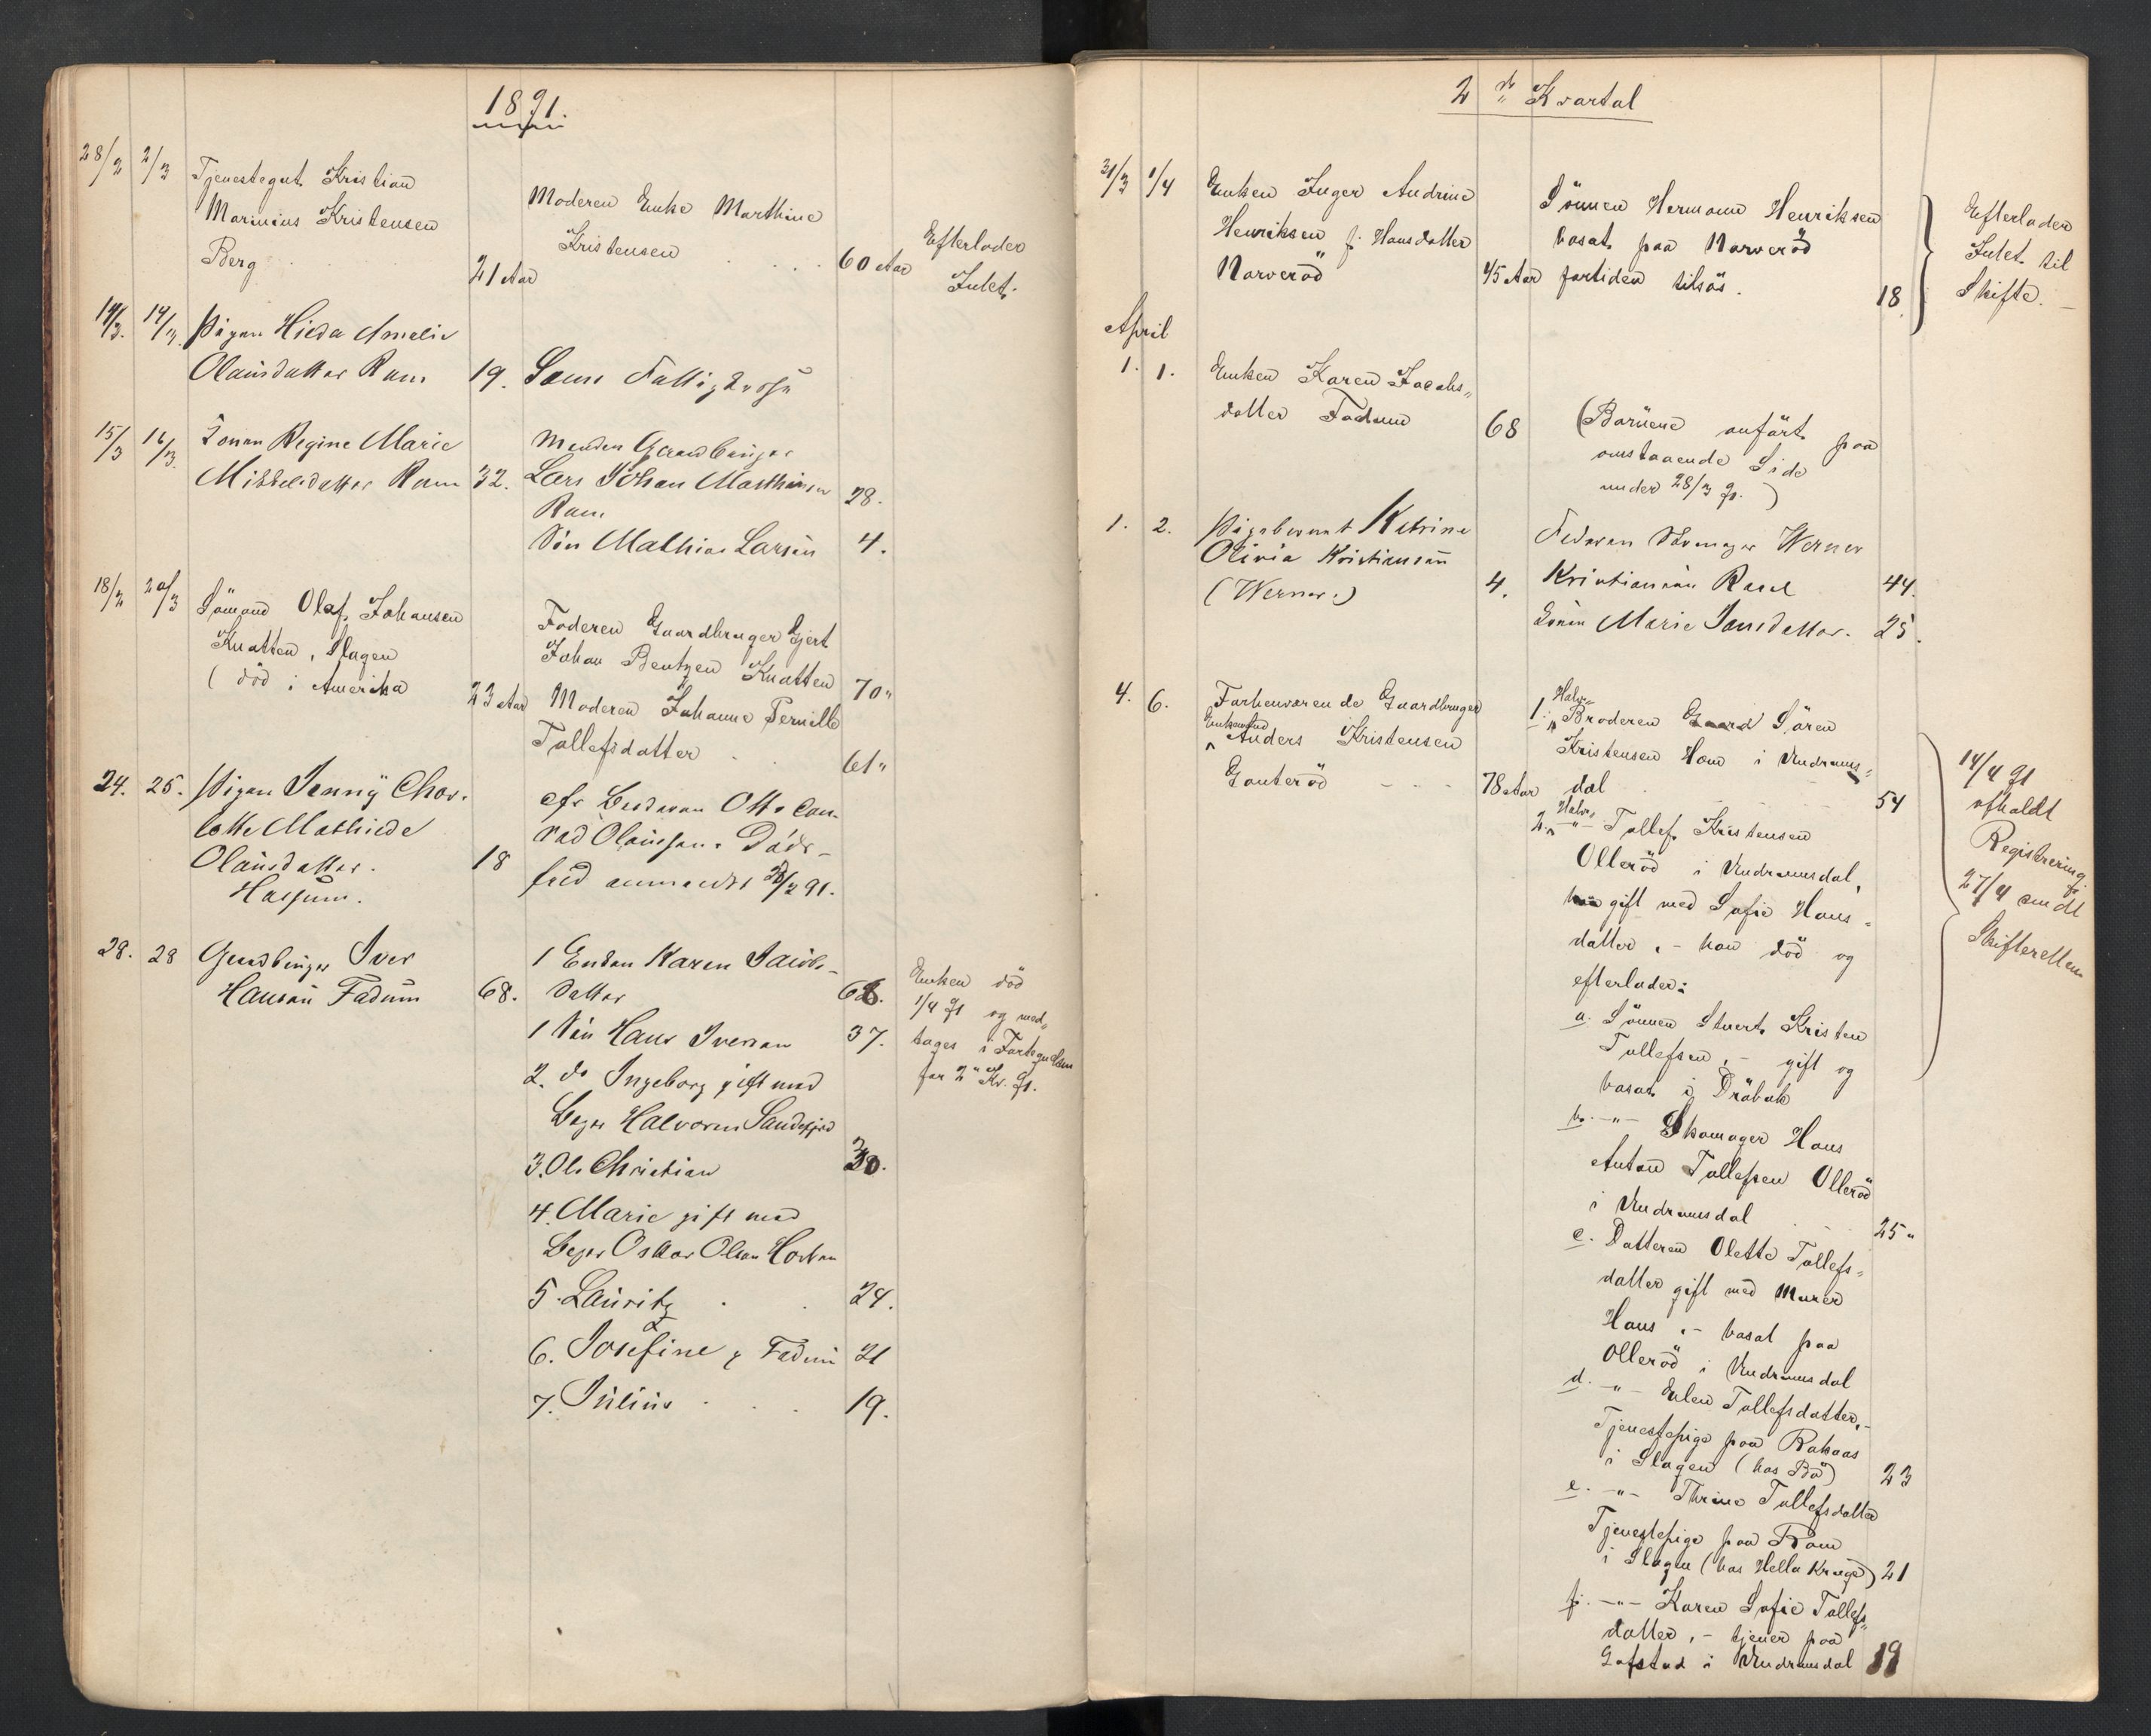 1891.
28/2 2/3 Tjenestegut Kristian
Marinius Kristensen
Berg 21 Aar
Moderen Enke Marthine
Kristensen 60 Aar
Efterlader
Intet.
14/3. 14/3. Pigen Hilda Amalie
Olausdatter Ram 19. Sem Fattigkasse
15/3 16/3. Konen Regine Marie
Mikkelsdatter Ram 32.
Manden Gaardbruger
Lars Johan Matthisen 28.
Ram
Søn Mathias Larsen 4.
18/2 20/3 Sömand Olaf Johansen
Knatten, Slagen
(död i Amerika 23 Aar
Faderen Gaardbruger Gjert
Johan Bentzen Knatten 70"
Moderen Johanne Pernille
Tollefsdatter 61"
24. 25. Pigen Jenny Char-
lotte Mathilde
Olausdatter. 18
Hassum.
cfr Ungkaren Otto Con-
rad Olaussens Døds-
fald anmeldt 28/2 91.
28. 28 Gaardbruger Iver
Hansen Fadum 68.
1 Enken Karen Jacobs-
datter 68.
1 Søn Hans Iversen 37.
2. do Ingeborg gift med
Halvorsen Sandefjord
3. Ole Christian 30.
4. Marie gift med
Oskar Olsen Horten
5. Lauritz 24.
6. Josefine Fadum 21
7. Julius 19.
Enken död
1/4 91 og med-
tages i Fortegnelsen
for 2det Kv. 91.
2det Kvartal
31/3 1/4 Enken Inger Andrine
Henriksen f. Hansdatter
Narveröd 45 Aar
Sönnen Hermann Henriksen
bosat paa Narveröd
fortiden tilsös. 18.
Efterlader
Intet til
Skifte.
April
1. 1. Enken Karen Jacobs-
datter Fadum 68
(Barnene anfört paa
omstaaende Side
under 28/3 91.)
1. 2. Pigebarnet Katrine
Olivia Kristiansen
(Werner.) 4.
Faderen Werner
Kristiansen Rasel 44.
Konen Marie Jansdatter. 25.
4. 6. Forhenværende Gaardbruger
Enkemand
Anders Kristensen
Gauteröd 78 Aar
1. Halv-
Broderen Gaard Sören
Kristensen Hom i Undrums-
dal 54
2. Halv- -"- Tollef Kristensen
Olleröd i Undrumsdal,
gift med Sofie Hans-
datter, - han död og
efterlader:
a. Sönnen Stuert Kristen
Tollefsen, - gift og
bosat i Dröbak
b. -"- Skomager Hans
Anton Tollefsen Olleröd
i Undrumsdal 25"
c. Datteren Olette Tollefs-
datter gift med Murer
Hans, - bosat paa
Olleröd i Undrumsdal
d. -"- Elen Tollefsdatter, -
Tjenestepige paa Rakaas
i Slagen (hos Bö) 23
e. -"- Thrine Tollefsdatter
Tjenestepige paa Ram
i Slagen (hos Hella Krage) 21
f. -"- Karen Sofie Tollefs-
datter, - tjener paa
Gofstad i Undrumsdal 19
14/4 91
afholdt
Registrering
27/4 sendt
Skifteretten